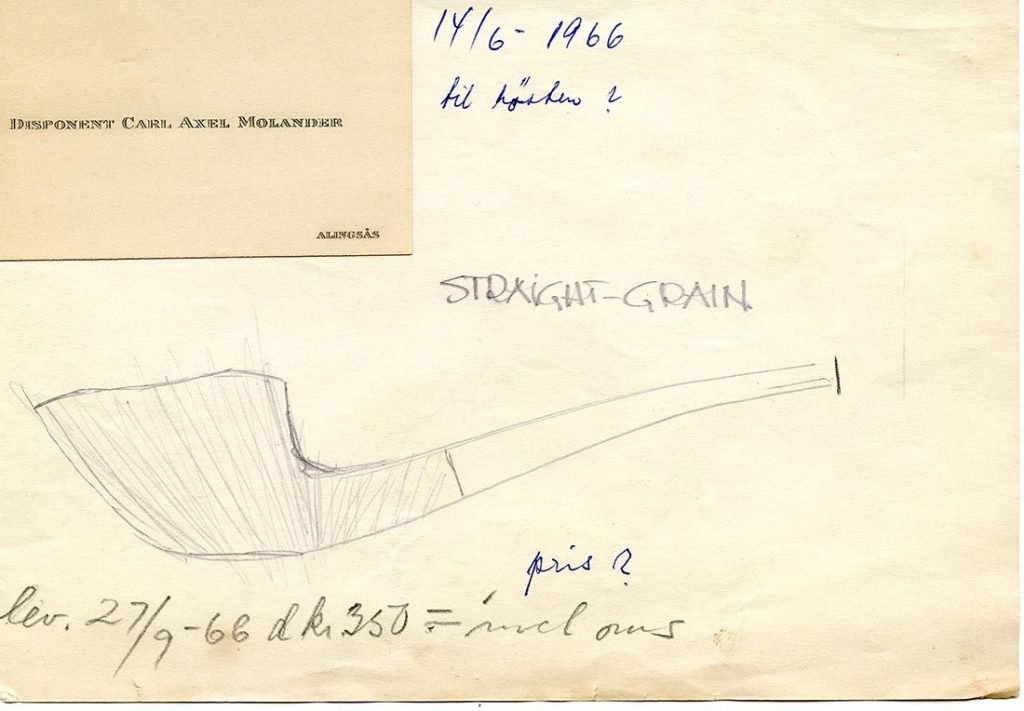 DISPONENT CARL AXEL MOLANDER
ALINGSÅS
14/6 - 1966
til hösten ?
STRAIGHT-GRAIN
pris ?
lev. 27/9-66 d kr. 350 = incl oms